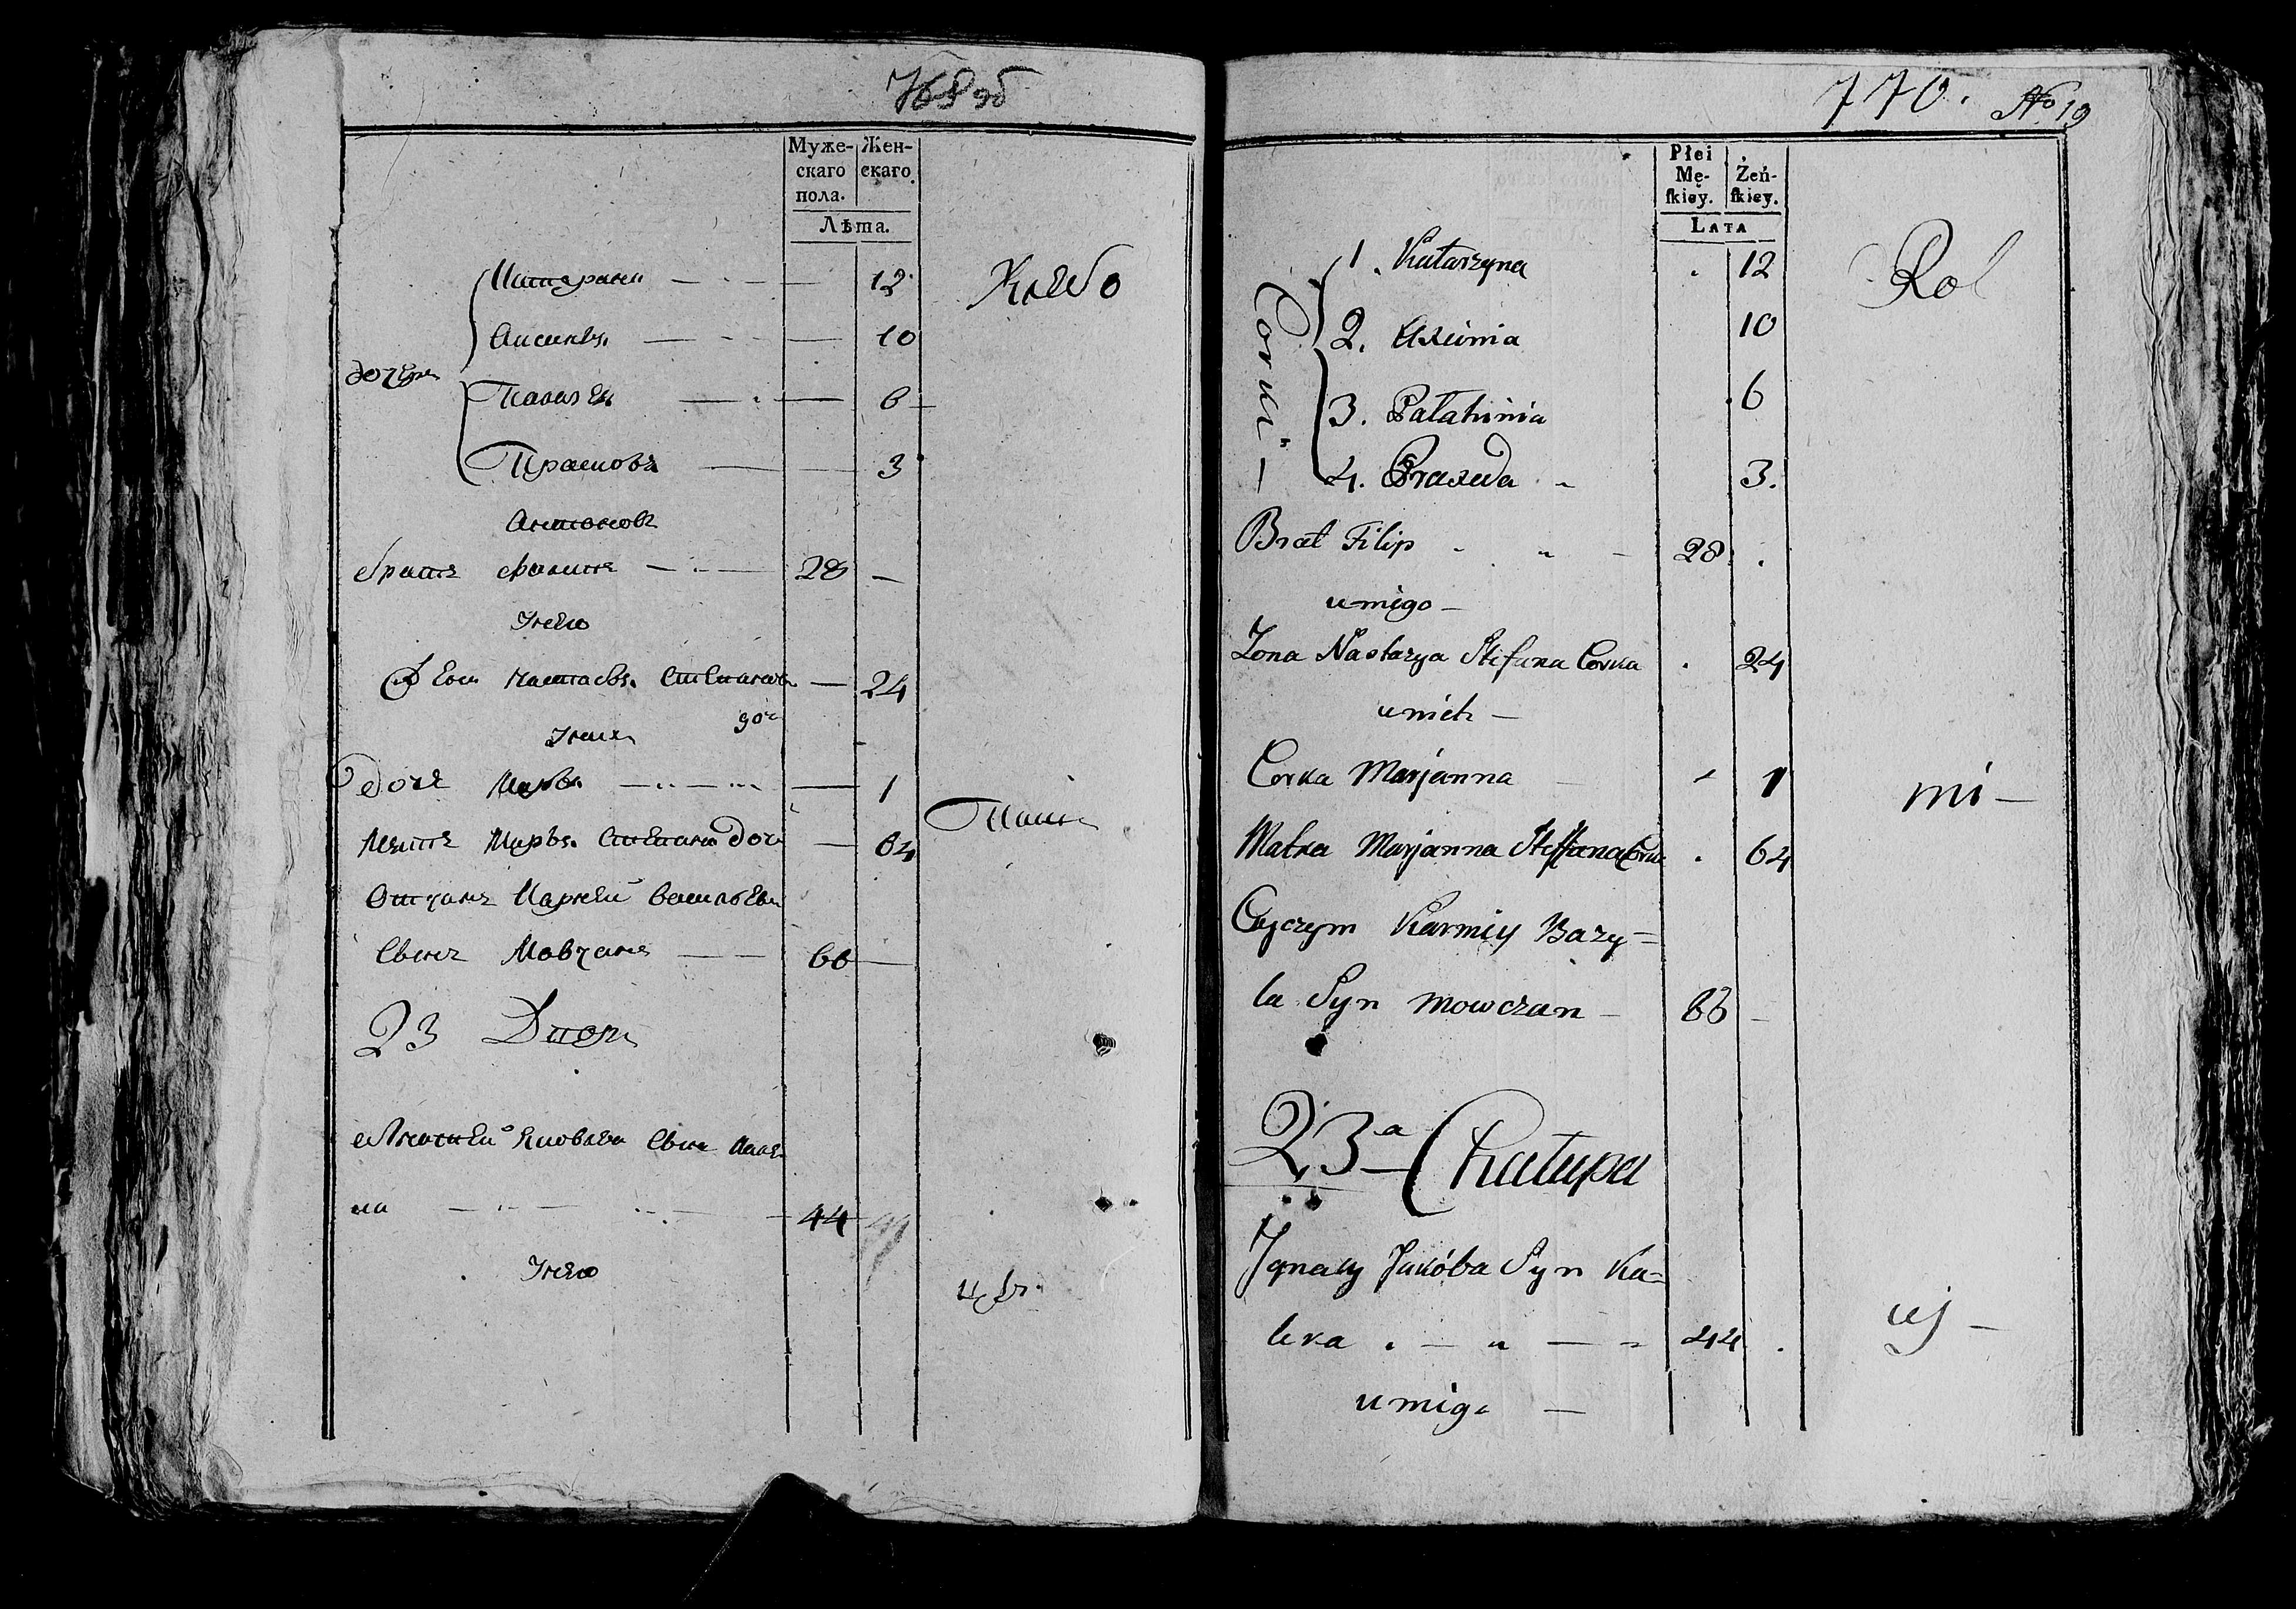 769 об
Муже-
скаго
пола.
Жен-
скаго.
Лѣта.
Катерина — 12 Хлебо
Аксинья — 10
дочери
Палагея — 6
Прасковья — 3
Антоновъ
братъ Филипъ — 28 —
У него
жена Настасья Степанова — 24
доч
У них
дочь Марья — 1
Паш
Мать Марья Степана доч — 64
Отчимъ Карней Василья
Сынъ Мовчанъ — 66 —
23 Дворъ
Игнатей Яковлевъ Сынъ Кале-
ка — 44
У него
770. No 19
Płci
Mę-
ſkiey.
Żeń-
ſkiey.
LATA
1. Katarzyna . 12 Rol
2. Axinia 10
Corki
3. Pałahinia 6
4. Praxeda 3.
Brat Filip - 28 .
u niego —
Żona Nastazya Stefana Corka . 24
u nich —
Corka Marjanna 1 mi —
Matka Marjanna Steffana Corka . 64
Oyczym Karniey Bazy=
la Syn Mowczan — 66 —
23a Chałupa
Ignacy Jakóba Syn Ka=
leka . — 44 . cy —
u niego —